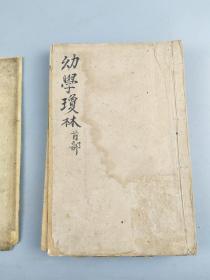 幼學瓊林首部